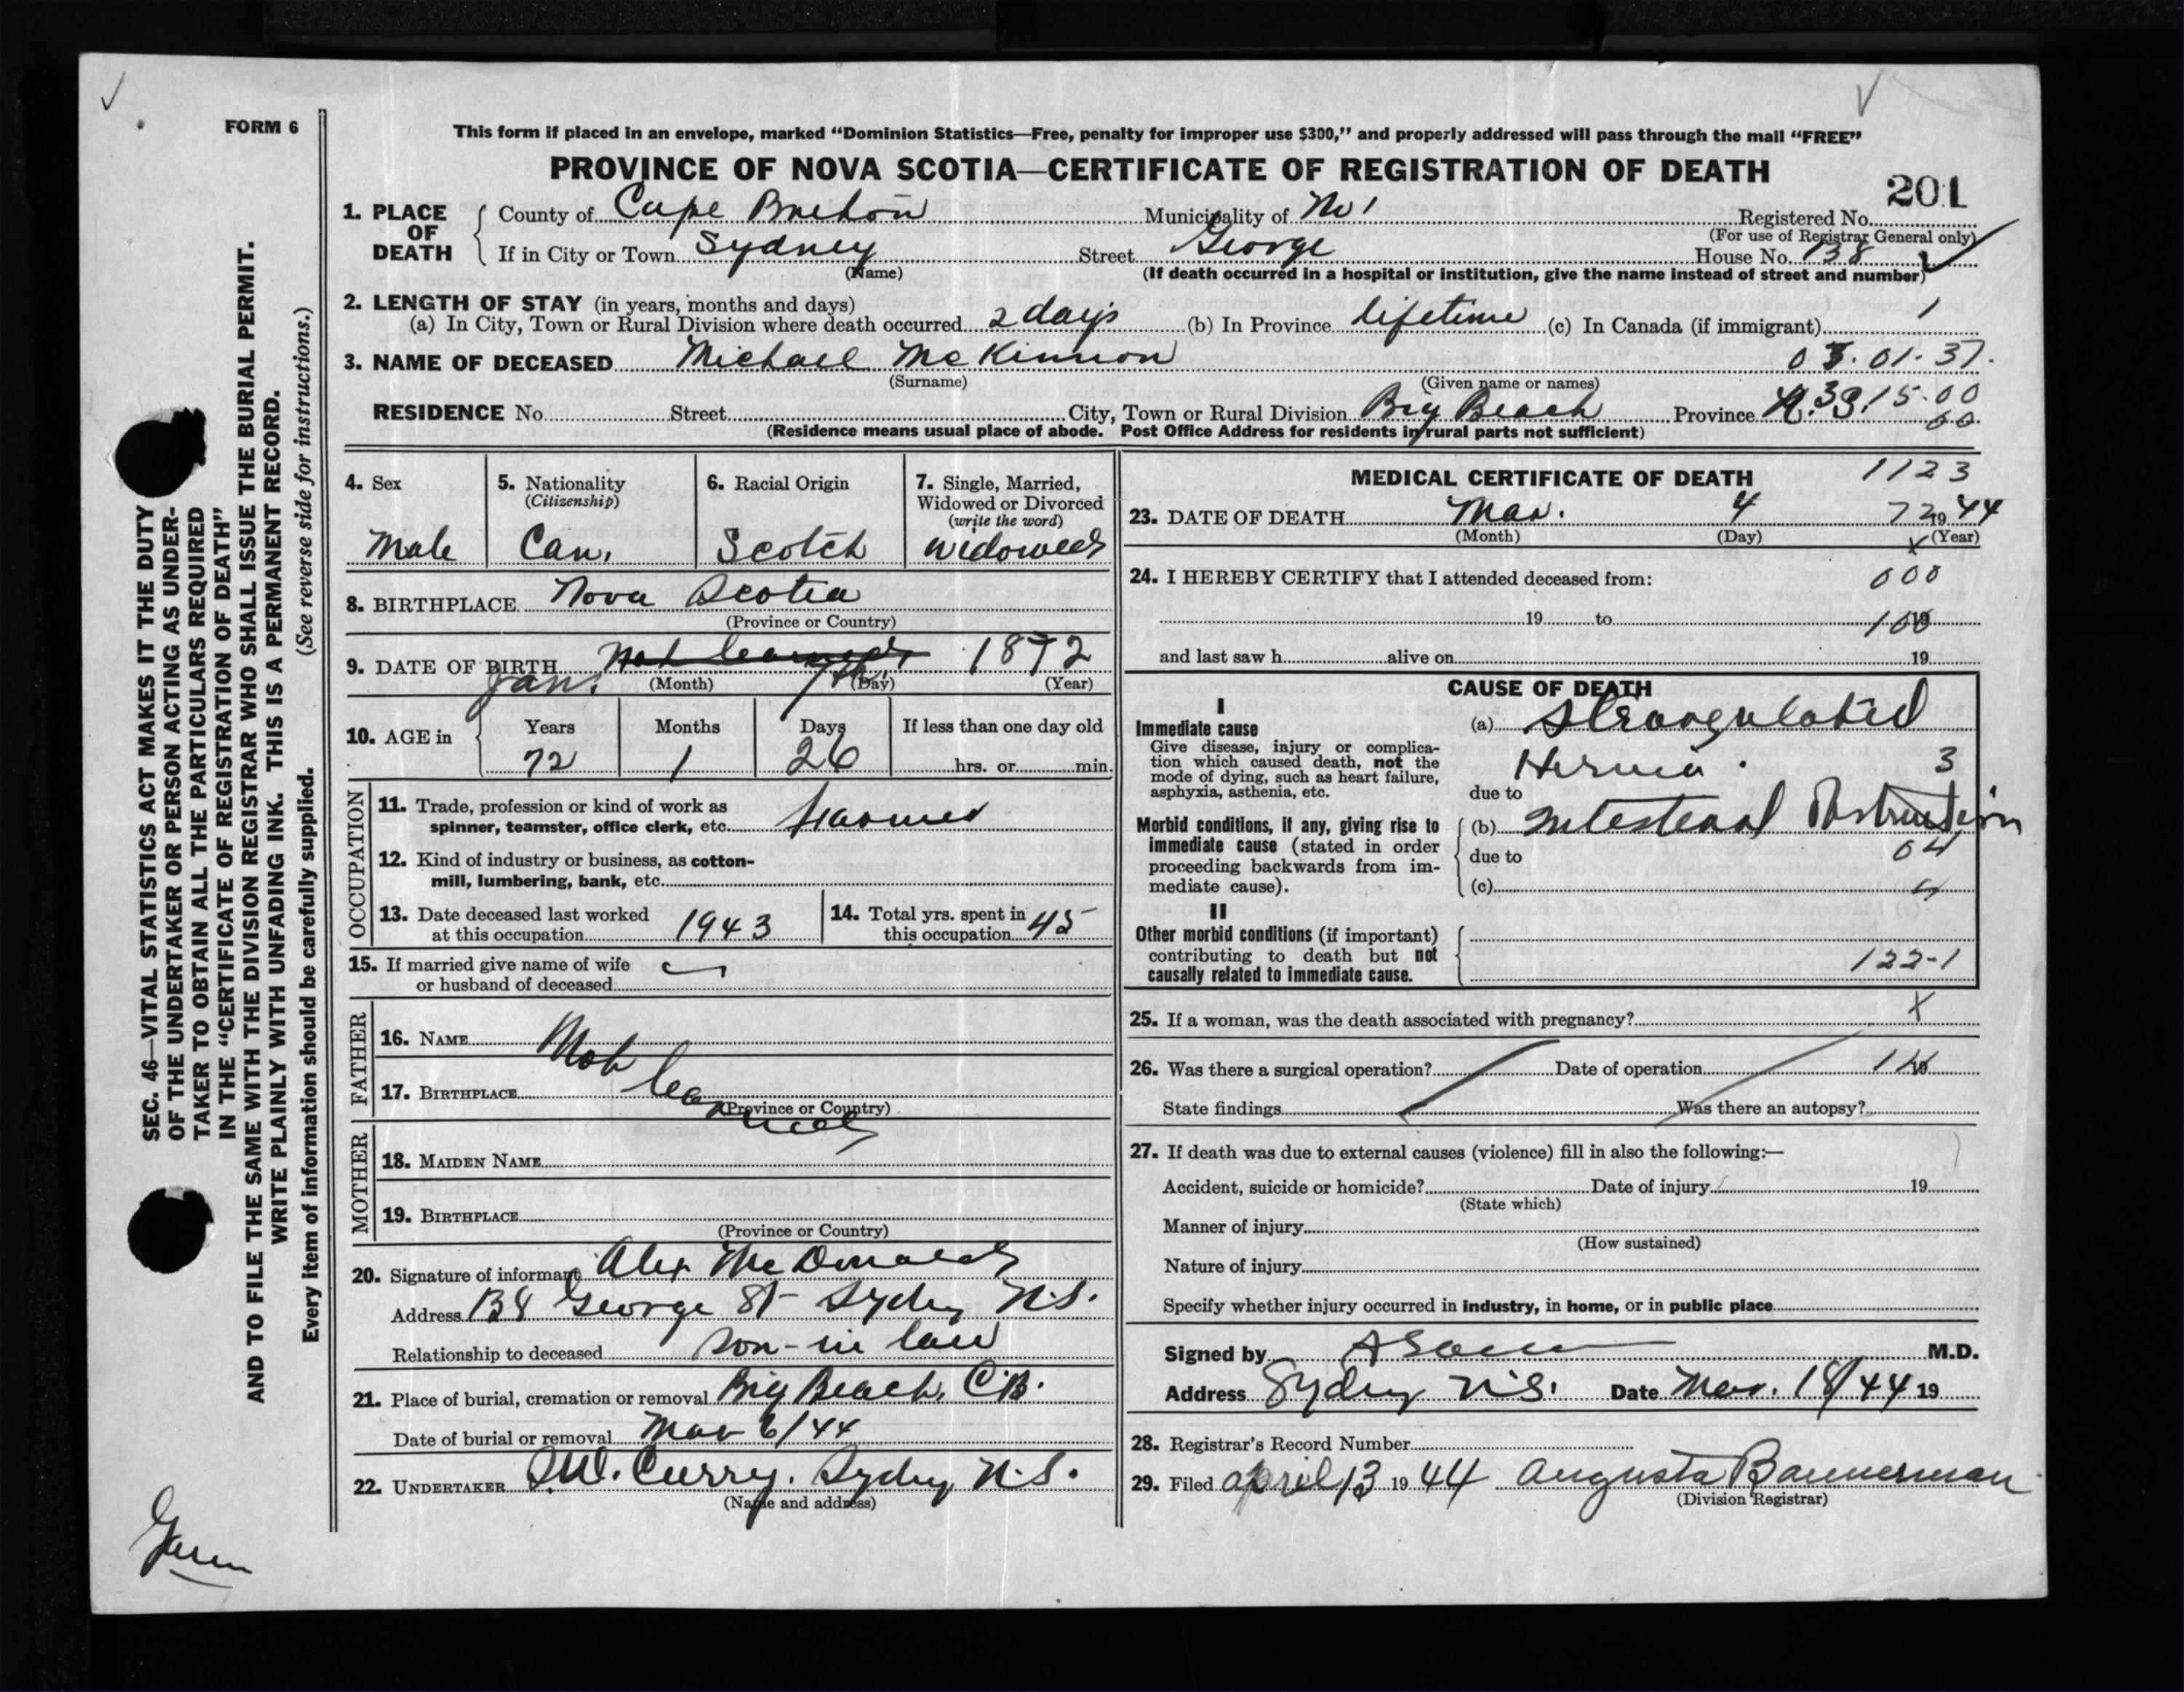 FORM 6
This form if placed in an envelope, marked "Dominion Statistics—Free, penalty for improper use $300," and properly addressed will pass through the mail "FREE"
PROVINCE OF NOVA SCOTIA—CERTIFICATE OF REGISTRATION OF DEATH
201
1. PLACE OF DEATH County of Cape Breton Municipality of No 1 Registered No.
(For use of Registrar General only)
If in City or Town Sydney Street George House No. 138
(Name) (If death occurred in a hospital or institution, give the name instead of street and number)
2. LENGTH OF STAY (in years, months and days) 1
(a) In City, Town or Rural Division where death occurred 2 days (b) In Province lifetime (c) In Canada (if immigrant)
3. NAME OF DECEASED Michael McKinnon
(Surname) (Given name or names)
RESIDENCE No. Street City, Town or Rural Division Big Beach Province N.S. 15.00
(Residence means usual place of abode. Post Office Address for residents in rural parts not sufficient)
4. Sex 5. Nationality 6. Racial Origin 7. Single, Married,
(Citizenship) Widowed or Divorced
(write the word)
Male Can. Scotch Widowed
8. BIRTHPLACE Nova Scotia
(Province or Country)
9. DATE OF BIRTH Not learned 1872
Jan. (Month) 7th (Day) (Year)
10. AGE in Years Months Days If less than one day old
72 1 26 hrs. or min.
OCCUPATION
11. Trade, profession or kind of work as
spinner, teamster, office clerk, etc. Farmer
12. Kind of industry or business, as cotton-
mill, lumbering, bank, etc.
13. Date deceased last worked
at this occupation 1943
14. Total yrs. spent in
this occupation 45
15. If married give name of wife
or husband of deceased
FATHER
16. NAME Not
17. BIRTHPLACE learned
(Province or Country)
MOTHER
18. MAIDEN NAME
19. BIRTHPLACE
(Province or Country)
20. Signature of informant Alex McDonald
Address 138 George St Sydney N.S.
Relationship to deceased son-in law
21. Place of burial, cremation or removal Big Beach, C.B.
Date of burial or removal Mar 6/44
22. UNDERTAKER Curry. Sydney N.S.
(Name and address)
MEDICAL CERTIFICATE OF DEATH 1123
23. DATE OF DEATH Mar. 4 72 1944
(Month) (Day) (Year)
24. I HEREBY CERTIFY that I attended deceased from: 000
19 to 19
and last saw h alive on 19
CAUSE OF DEATH
I
Immediate cause (a) Strangulated
Give disease, injury or complica-
tion which caused death, not the
mode of dying, such as heart failure,
asphyxia, asthenia, etc.
Hernia. 3
due to
Morbid conditions, if any, giving rise to
immediate cause (stated in order
proceeding backwards from im-
mediate cause).
(b) Intestinal Obstruction
due to 04
(c) 4
II
Other morbid conditions (if important)
contributing to death but not
causally related to immediate cause.
122-1
25. If a woman, was the death associated with pregnancy? X
26. Was there a surgical operation? Date of operation 19
State findings Was there an autopsy?
27. If death was due to external causes (violence) fill in also the following:—
Accident, suicide or homicide? Date of injury 19
(State which)
Manner of injury
(How sustained)
Nature of injury
Specify whether injury occurred in industry, in home, or in public place
Signed by M.D.
Address Sydney N.S. Date Mar. 18/44 19
28. Registrar's Record Number
29. Filed April 13 1944 Augusta Bannerman
(Division Registrar)
SEC. 46—VITAL STATISTICS ACT MAKES IT THE DUTY
OF THE UNDERTAKER OR PERSON ACTING AS UNDER-
TAKER TO OBTAIN ALL THE PARTICULARS REQUIRED
IN THE "CERTIFICATE OF REGISTRATION OF DEATH"
AND TO FILE THE SAME WITH THE DIVISION REGISTRAR WHO SHALL ISSUE THE BURIAL PERMIT.
WRITE PLAINLY WITH UNFADING INK. THIS IS A PERMANENT RECORD.
Every item of information should be carefully supplied. (See reverse side for instructions.)